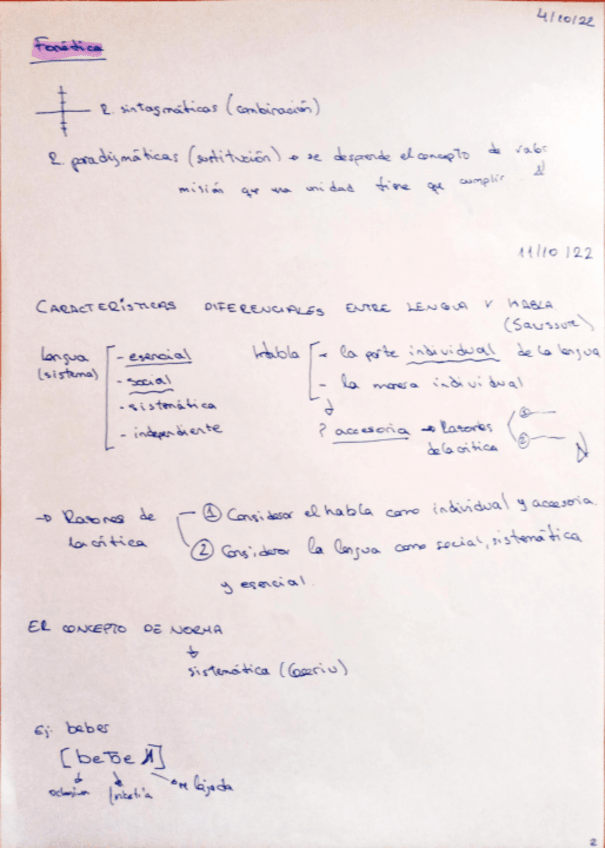 4/10/22
Fonética
R. sintagmáticas (combinación)
R. paradigmáticas (sustitución) → se desprende el concepto de valor
misión que una unidad tiene que cumplir
11/10/22
CARACTERÍSTICAS DIFERENCIALES ENTRE LENGUA Y HABLA
(Saussure)
Lengua (sistema)
- esencial
- social
- sistemática
- independiente
Habla
- la parte individual de la lengua
- la manera individual
↓
? accesoria → Razones de la crítica
①
②
→ Razones de la crítica
① Considerar el habla como individual y accesoria.
② Considerar la lengua como social, sistemática
y esencial.
EL CONCEPTO DE NORMA
↓
sistemática (Coseriu)
Ej: bebes
oclusiva
relajada
2